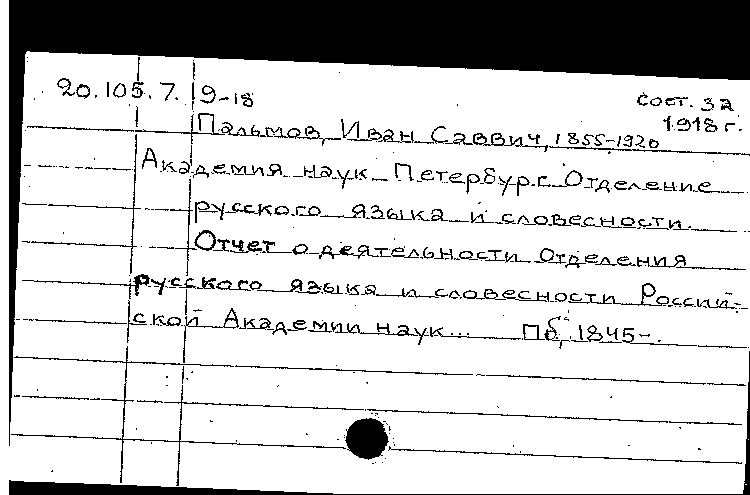 20.105.7. 9-18 сост. за
1918 г.
Пальмов, Иван Саввич, 1855-1920
Академия наук. Петербург. Отделение
русского языка и словесности.
Отчет о деятельности Отделения
русского языка и словесности Россий-
ской Академии наук... Пб, 1845-.